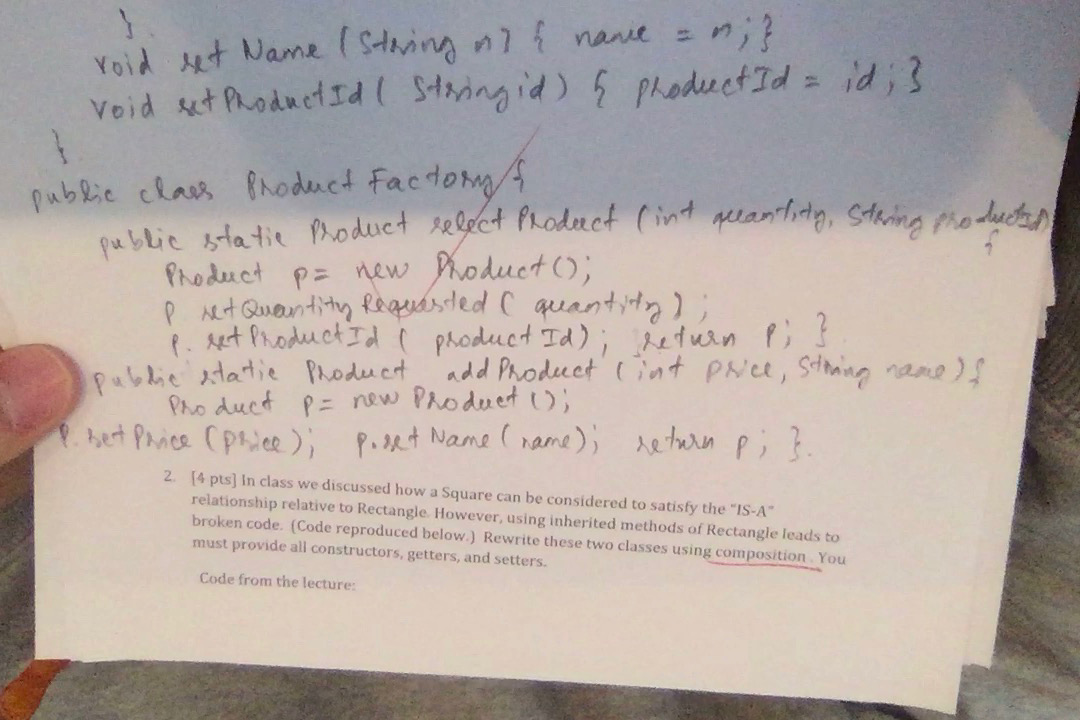 }
void set Name (String n) { name = n; }
void setProductId ( String id) { productId = id; }
}
public class Product Factory {
public static Product select Product (int quantity, String productId)
{
Product p = new Product();
p setQuantityRequested ( quantity) ;
p. setProductId ( product Id); return p; }
public static Product add Product (int price, String name) {
Product p = new Product ();
p. set Price (price); p.set Name ( name); return p; }.
2. [4 pts] In class we discussed how a Square can be considered to satisfy the "IS-A"
relationship relative to Rectangle. However, using inherited methods of Rectangle leads to
broken code. (Code reproduced below.) Rewrite these two classes using composition . You
must provide all constructors, getters, and setters.
Code from the lecture: